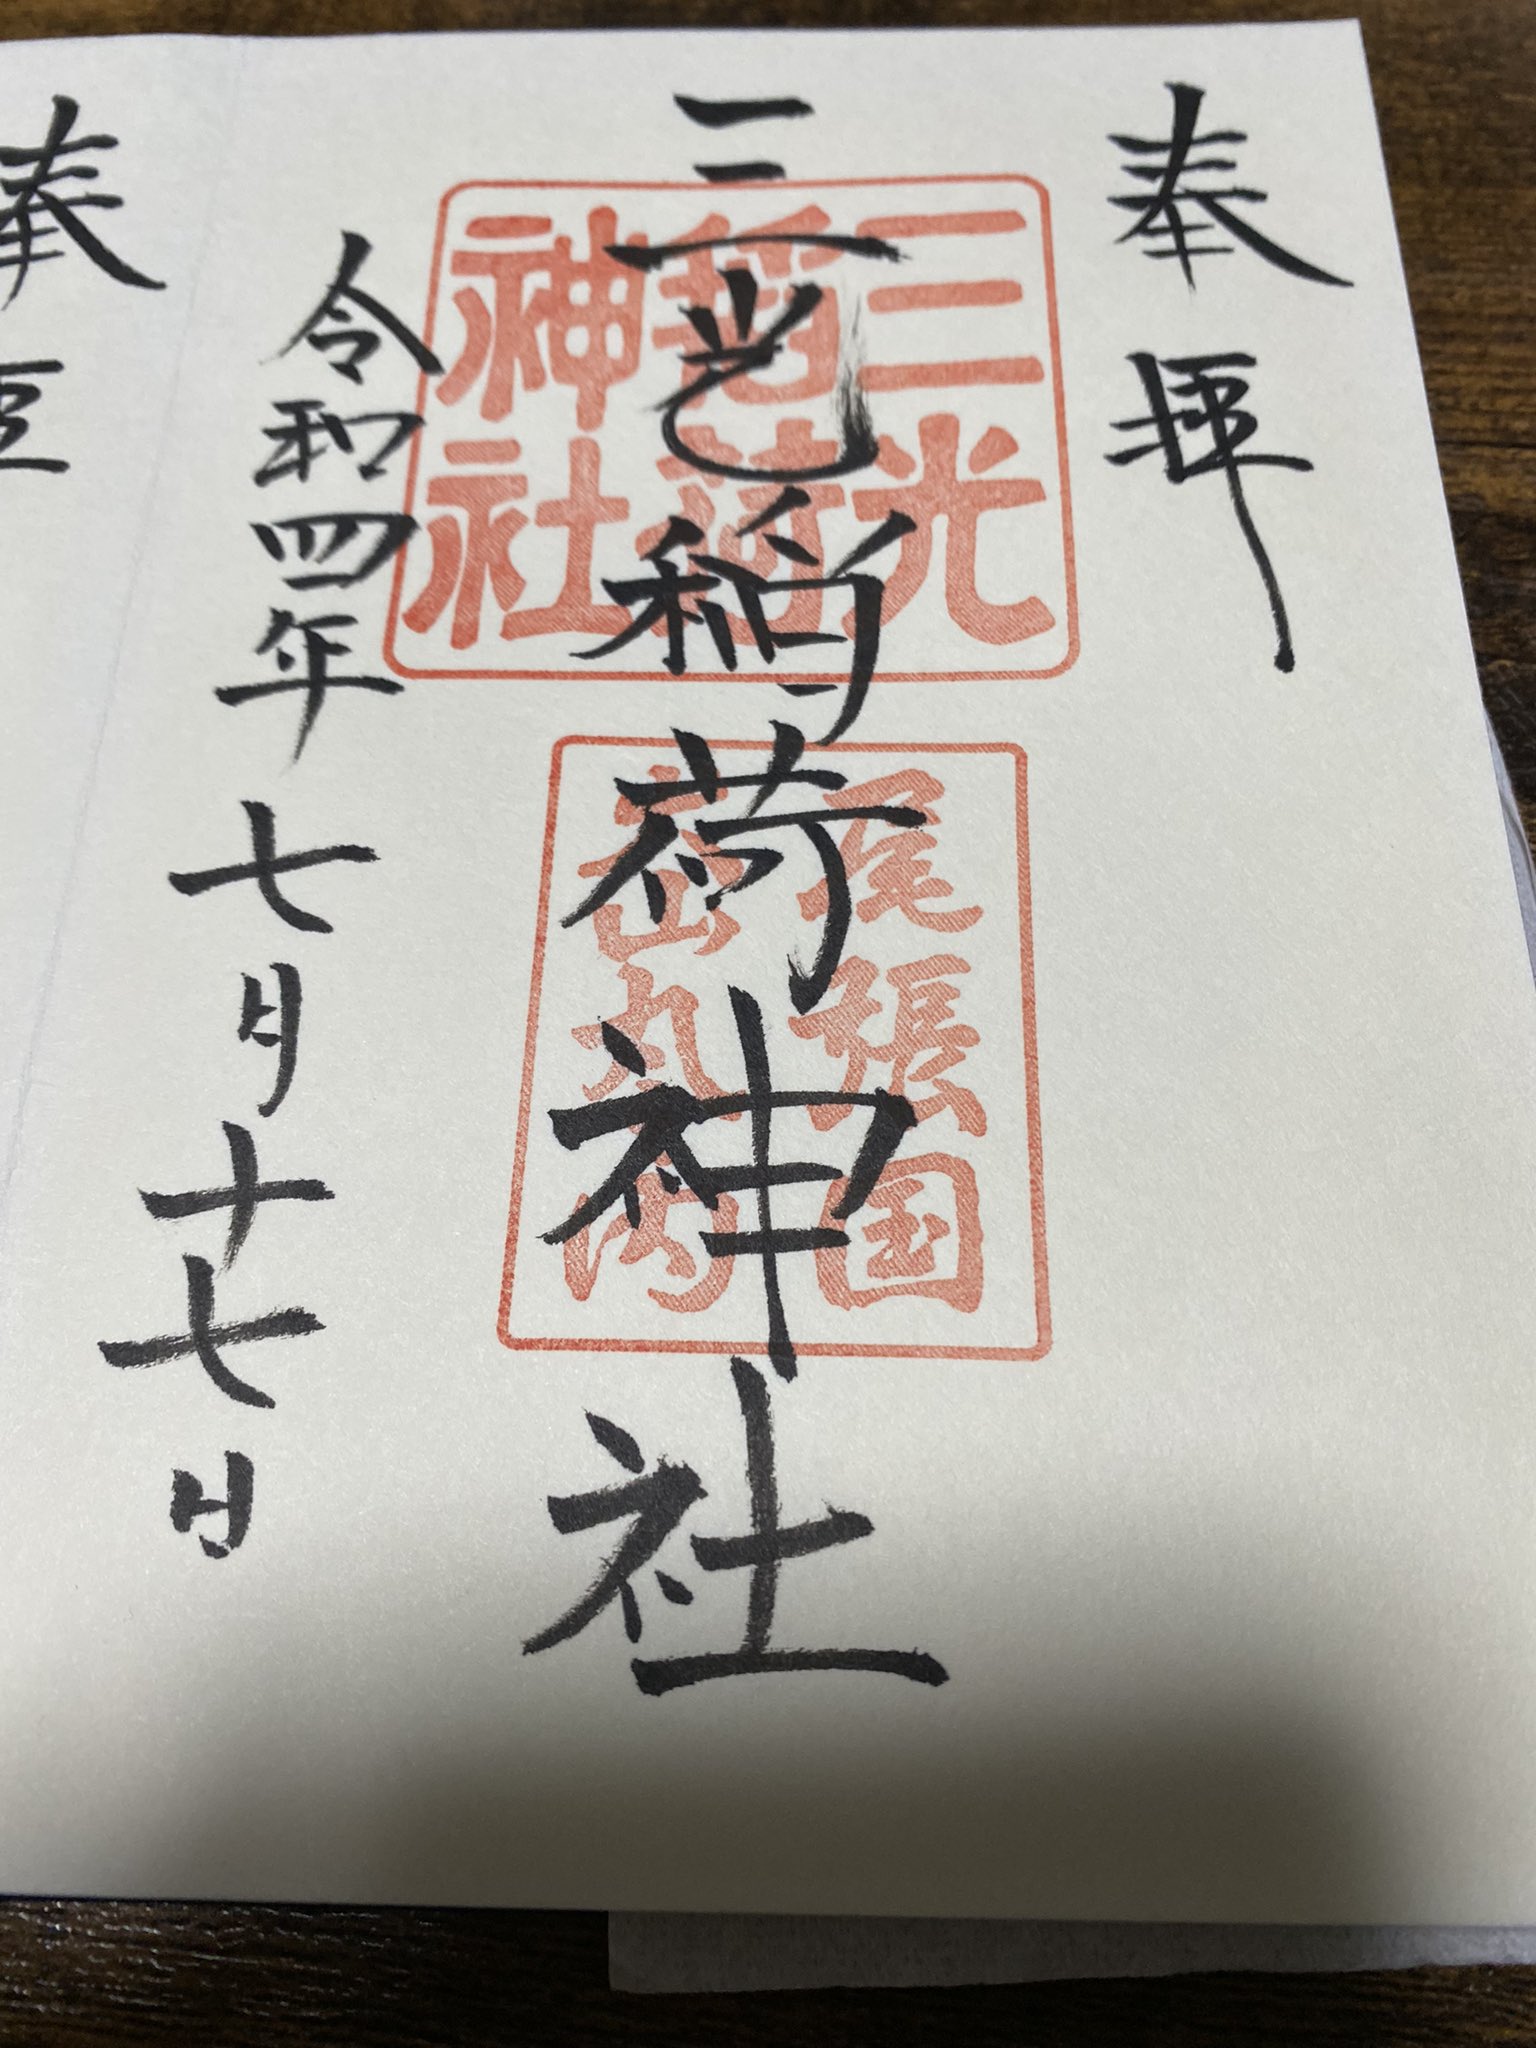 奉拝
三光稲荷神社
三光
稲荷
神社
尾張国
犬山丸ノ内
令和四年七月十七日
奉